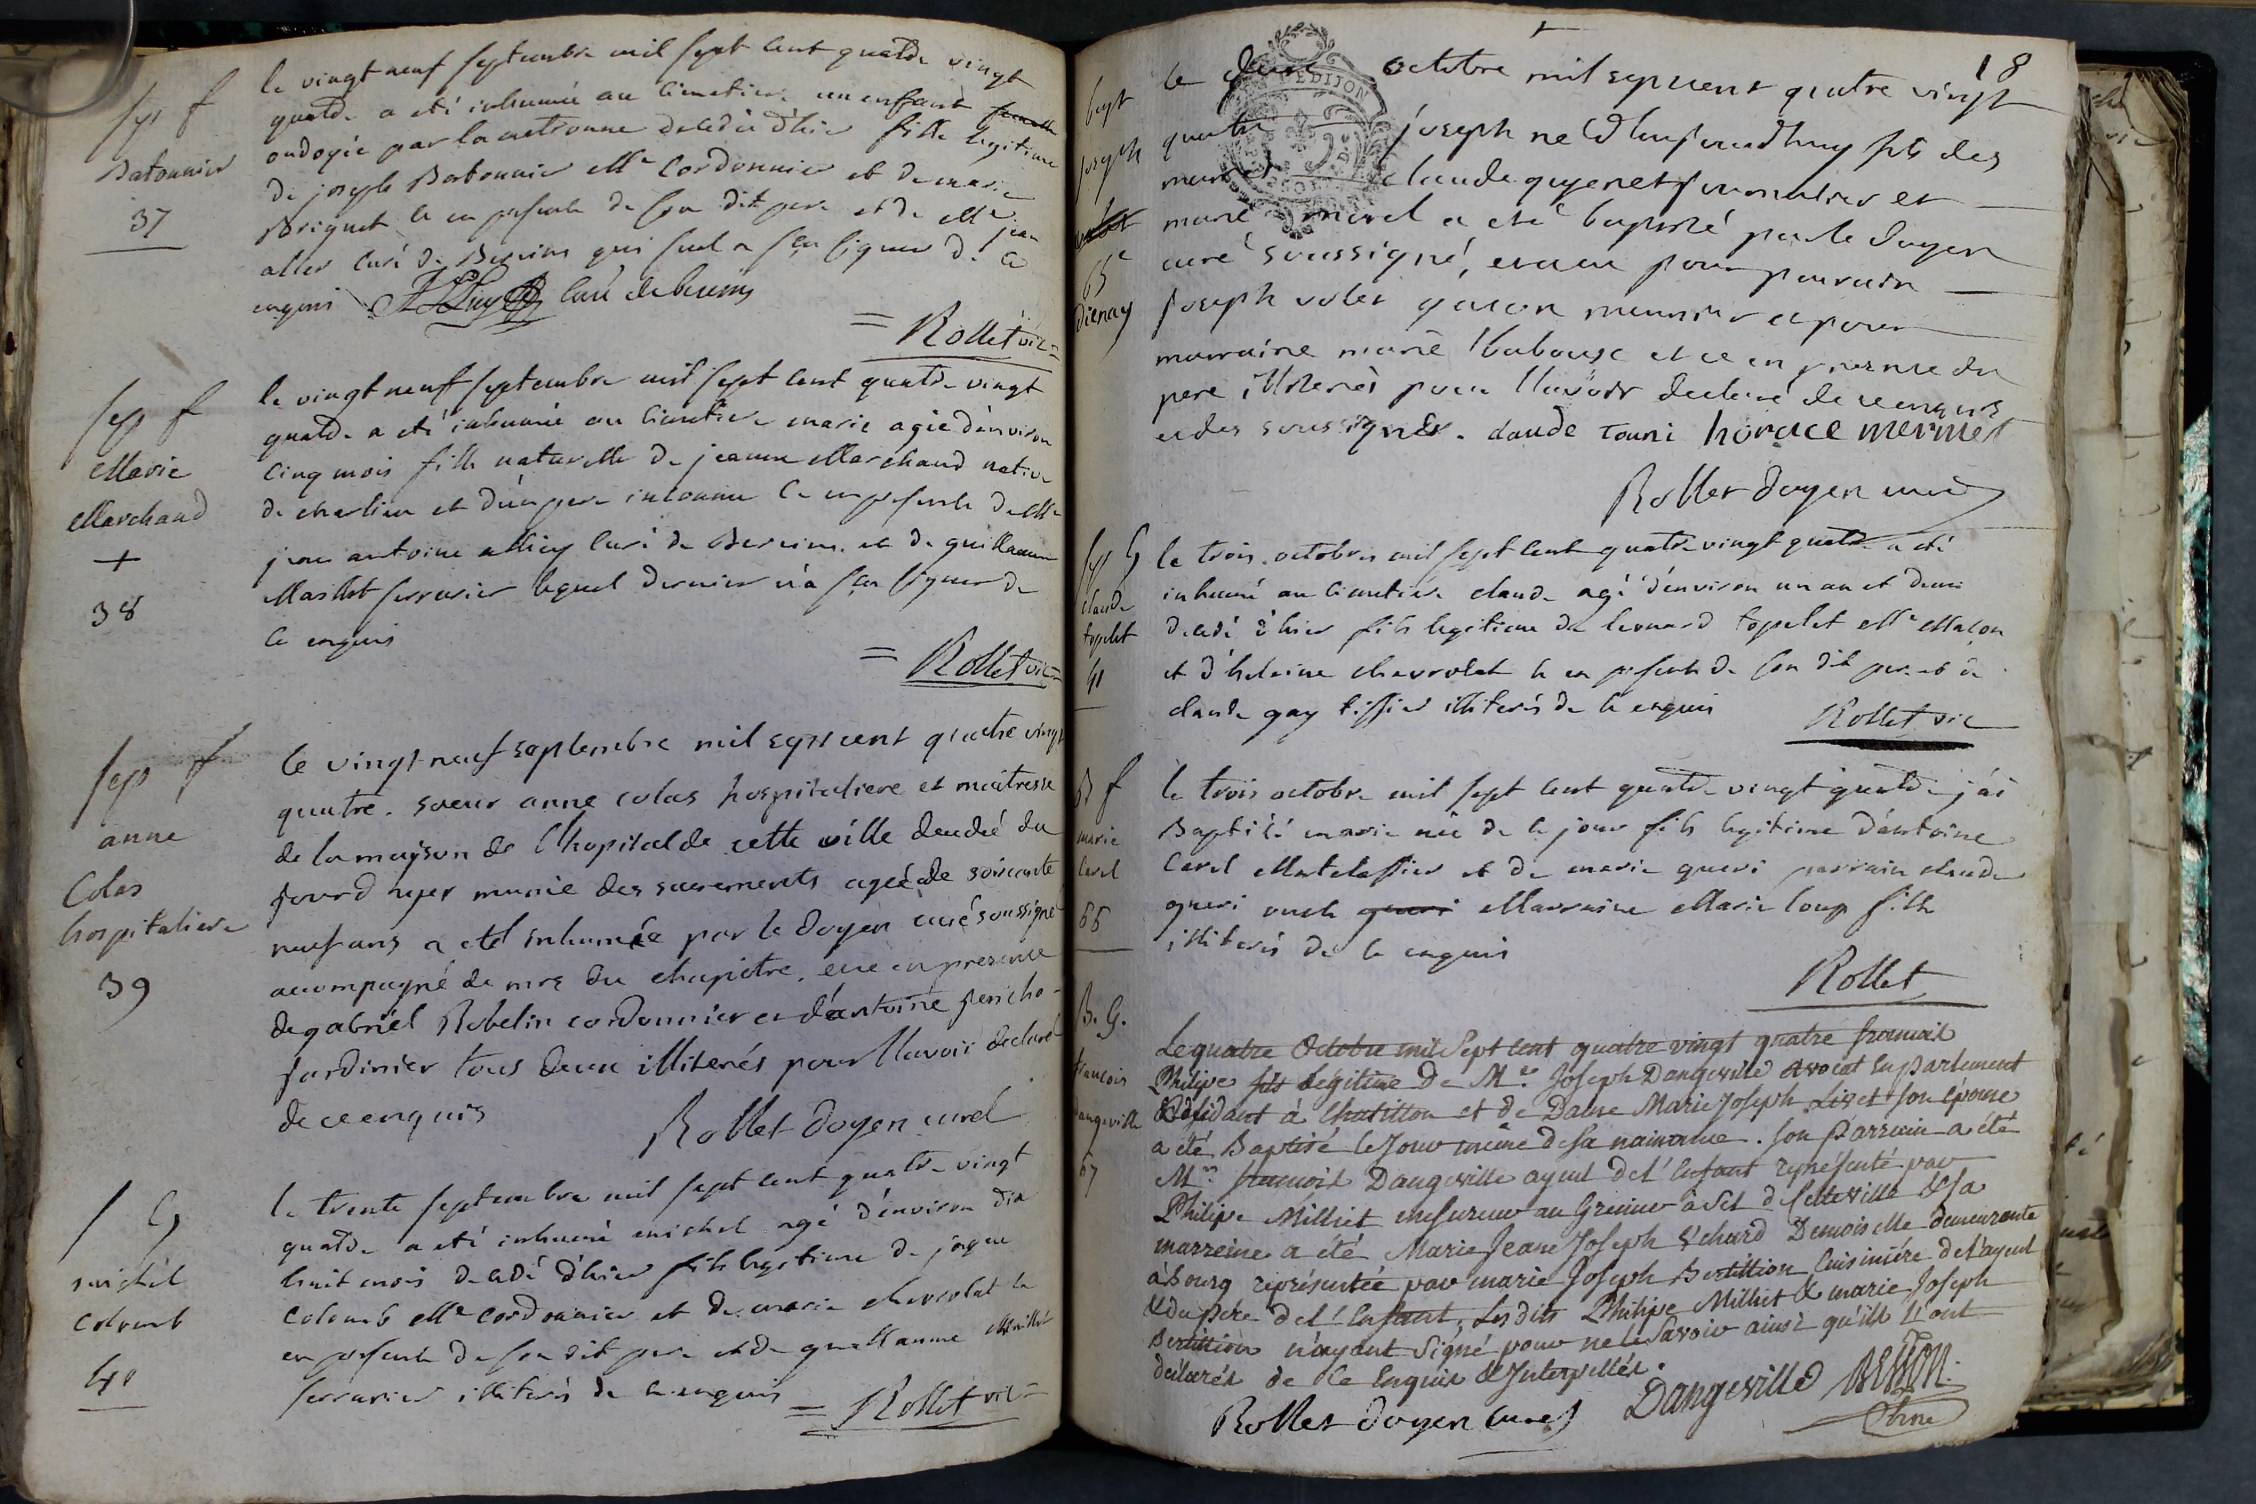 sep f
Batonnier
37
le vingt neuf septembre mil sept cent quatre vingt
quatre a eté inhumée au cimetiere un enfant
ondoyée par la matronne decedée d'hier fille legitime
de joseph Batonnier Me Cordonnier et de marie
Briquet ce en presence de son dit pere et de Me jean
curé de Bereins qui seul a sçu signer de ce
enquis curé de bereins
= Rollet vic =
sep f
Marie
Marchand
+
38
le vingt neuf septembre mil sept cent quatre vingt
quatre a eté inhumée au cimetiere marie agée d'environ
cinq mois fille naturelle de jeanne Marchand native
de charlieu et d'un pere inconnu ce en presence de Me
jean antoine curé de Bereins et de guillaume
Maillet serrurier lequel dernier n'a sçu signer de
ce enquis
= Rollet vic =
sep f
anne
Colas
hospitaliere
39
le vingt neuf septembre mil sept cent quatre vingt
quatre. soeur anne colas hospitaliere et maitresse
de la maison de l'hopital de cette ville decedée du
jourd'huyer munie des sacrements ageé de soixante
neuf ans a eté inhumée par le doyen curé soussigné
accompagné de mrs du chapitre, et ce en presence
de gabriel Robelin cordonnier et d'antoine pericho
jardinier tous deux illiterés pour l'lavoir declaré
de ce enquis
Rollet doyen curé
s G
michel
colomb
40
le trente septembre mil sept cent quatre vingt
quatre a eté inhumé michel agé d'environ dix
huit mois decedé d'hier fils legitime de jaque
Colomb Me Cordonnier et de marie chevrolat ce
en presence de son dit pere et de guillaume Maillet
serrurier illiterés de ce enquis
= Rollet vic =
18
bapt
joseph
65e
dienay
le deux octobre mil sept cent quatre vingt
quatre joseph né d'aujourd'huy fils des
claude guyenet et
marie morel a eté baptisé par le doyen
curé soussigné, et a eu pour parrain
joseph volet garcon meunier et pour
marraine marie et ce en presence du
pere illiterés pour l'lavoir declaré de ce enquis
et des soussignés. claude touni horace mermet
Rollet doyen curé
sep G
claude
topelet
41
le trois octobre mil sept cent quatre vingt quatre a eté
inhumé au cimetiere claude agé d'environ un an et demi
decedé d'hier fils legitime de leonard topelet Me Maçon
et d'heleine chevrolat ce en presence de son dit pere et de
claude gay tissier illiterés de ce enquis
Rollet vic
B f
marie
carel
66
le trois octobre mil sept cent quatre vingt quatre j'ai
Baptisé marie née de ce jour fille legitime d'antoine
Carel Matelassier et de marie queri parrain claude
queri oncle queri Marraine Marie loup fille
illiterés de ce enquis
Rollet
B. G.
francois
dangeville
67
Le quatre Octobre mil Sept Cent quatre vingt quatre francois
Philipe fils Légitime De Me. Joseph Dangeville Avocat En parlement
Résidant à Chatillon et de Dame Marie Joseph Livet Son épouse
a été Baptisé le Jour même de sa naissance. Son Parrain a été
Mre. francois Dangeville ayeul de l'Enfant représenté par
Philipe Milliet mesureur au Grenier à Sel de Cette ville & Sa
marreine a été Marie Jeane Joseph Demoiselle demeurante
à Bourg représentée par marie Joseph Bertittion Cuisinière de L'ayeul
& du père de l'Enfant, Les dits Philipe Milliet & marie Joseph
Bertittion n'ayant Signé pour ne le Savoir ainsi qu'ils L'ont
déclarés de Ce Enquis & Interpellés.
Dangeville
Rollet doyen Curé